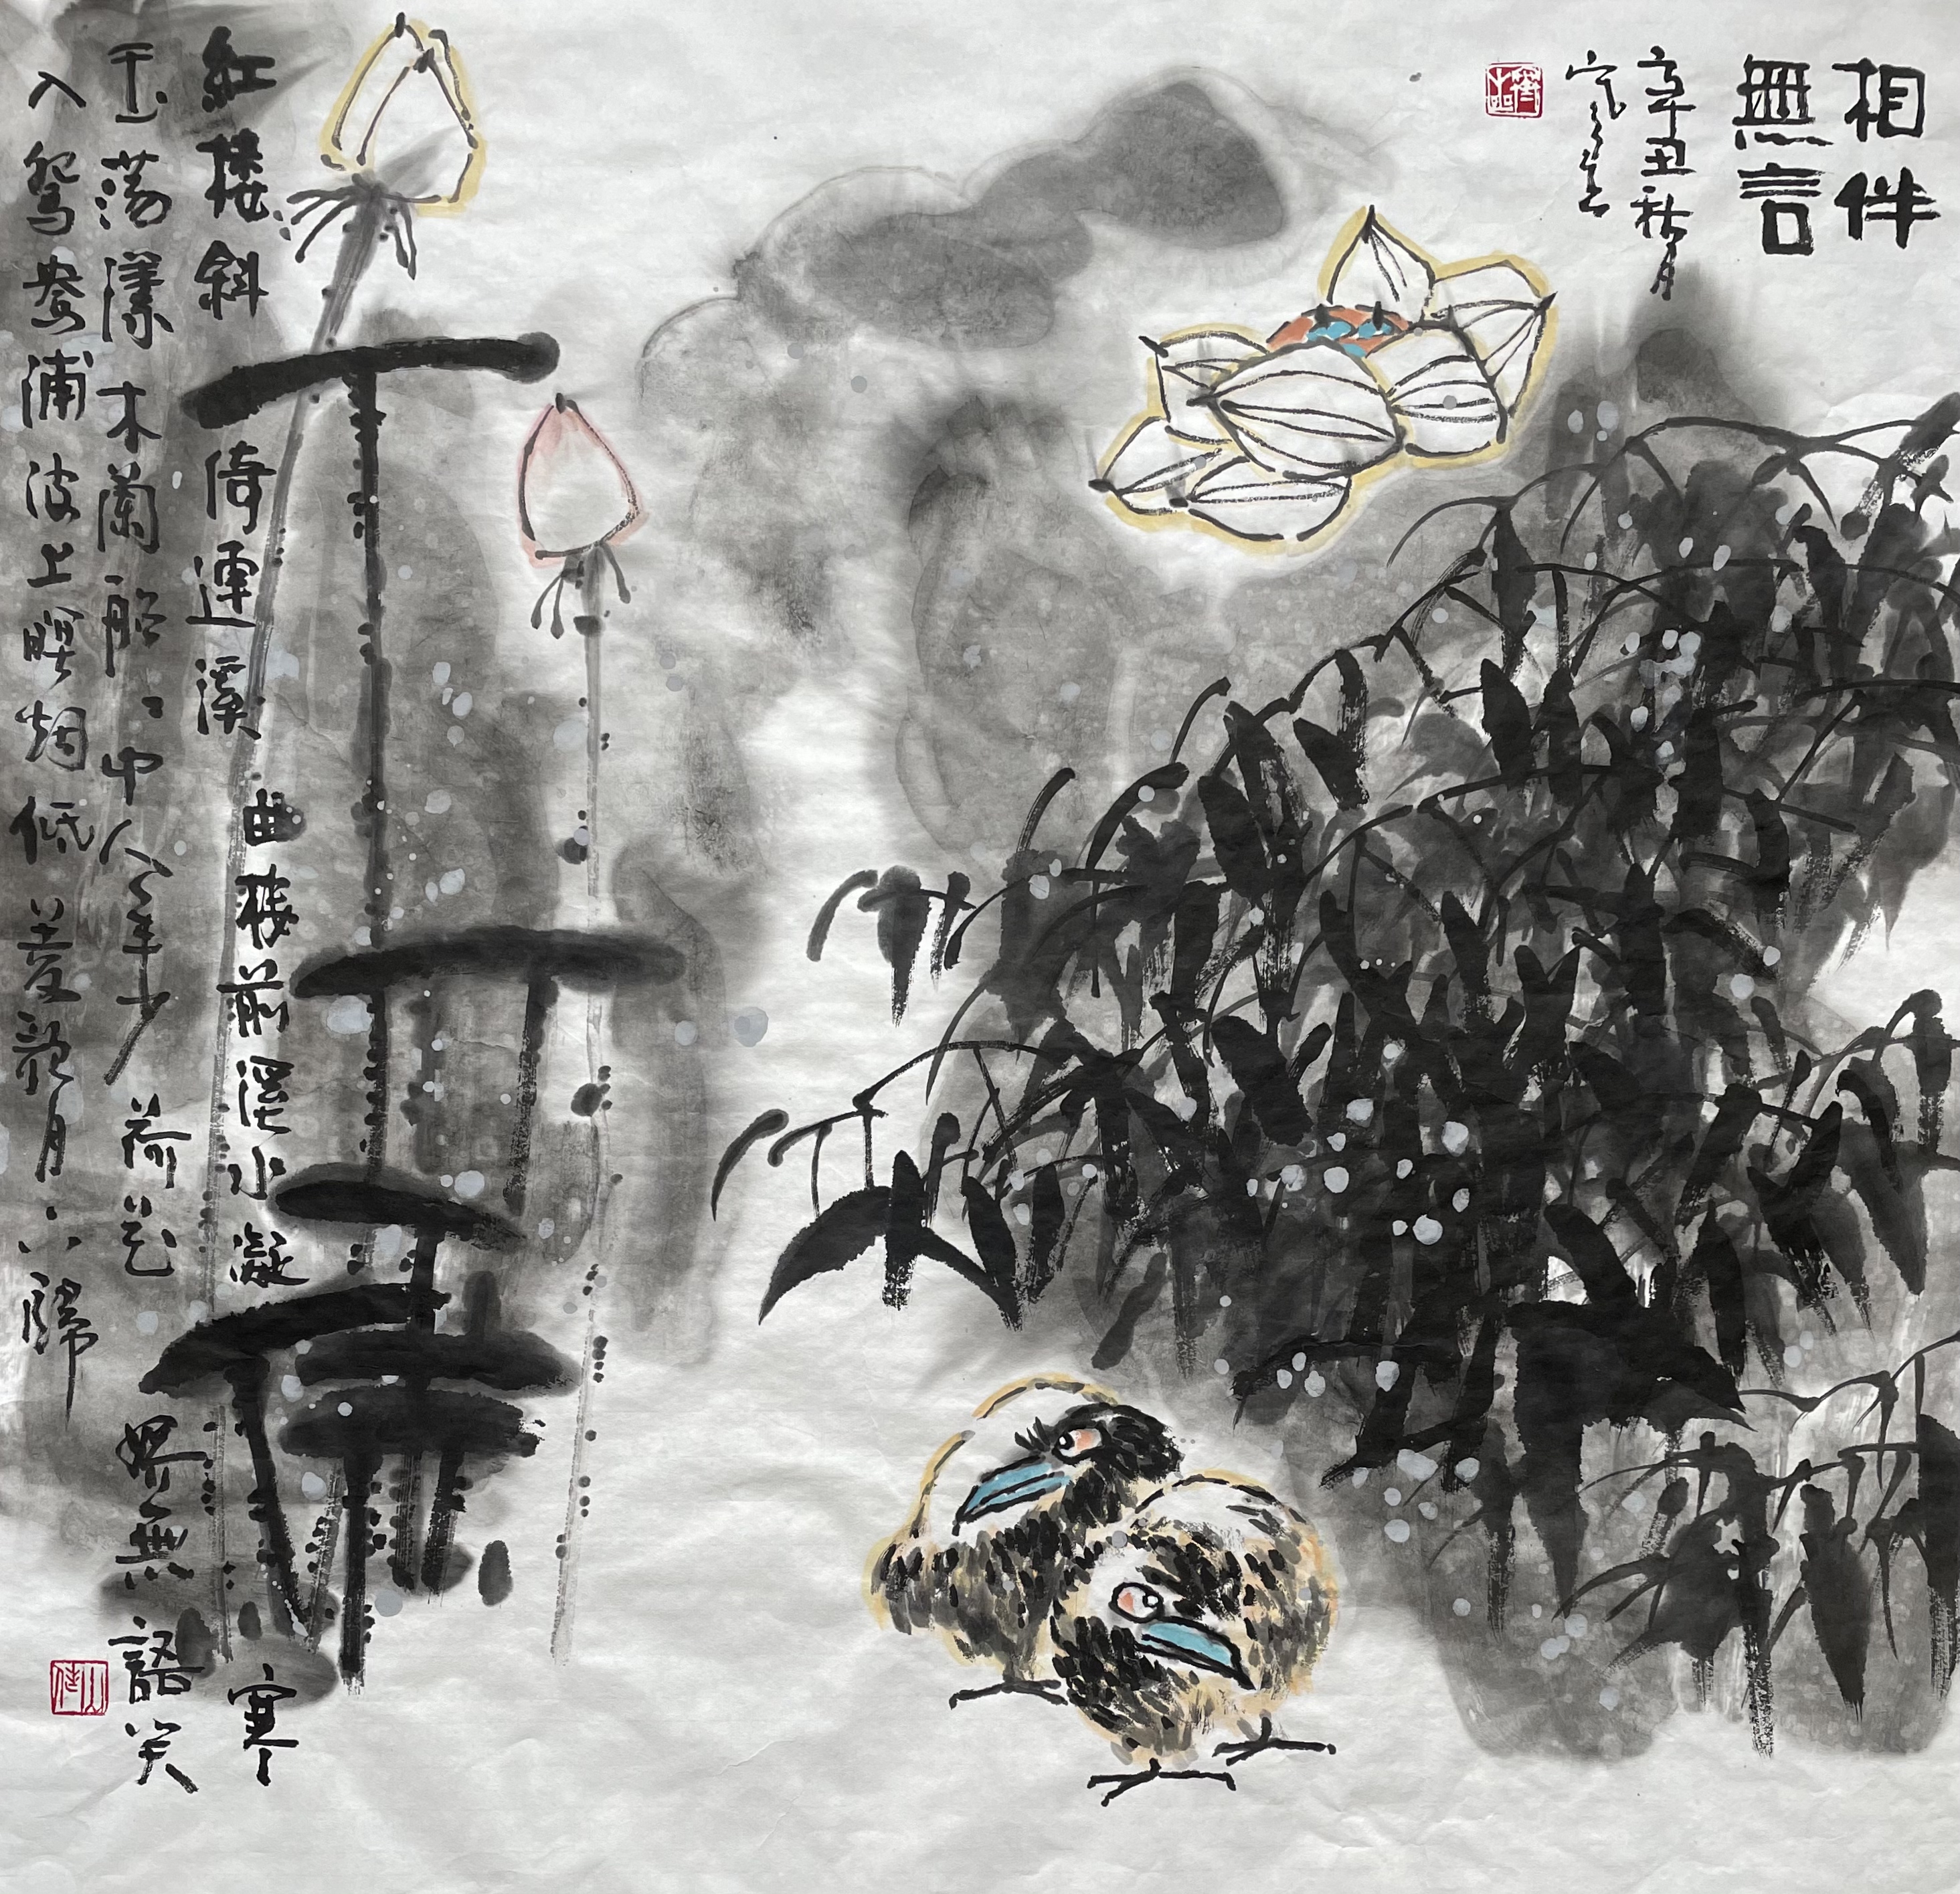 相伴
無言
辛丑秋月
紅楼斜倚連溪曲楼前溪水凝寒
玉蕩漾木蘭船〻中人年少荷花嬌無語笑
入鴛鴦浦波上暝烟低菱歌月下歸